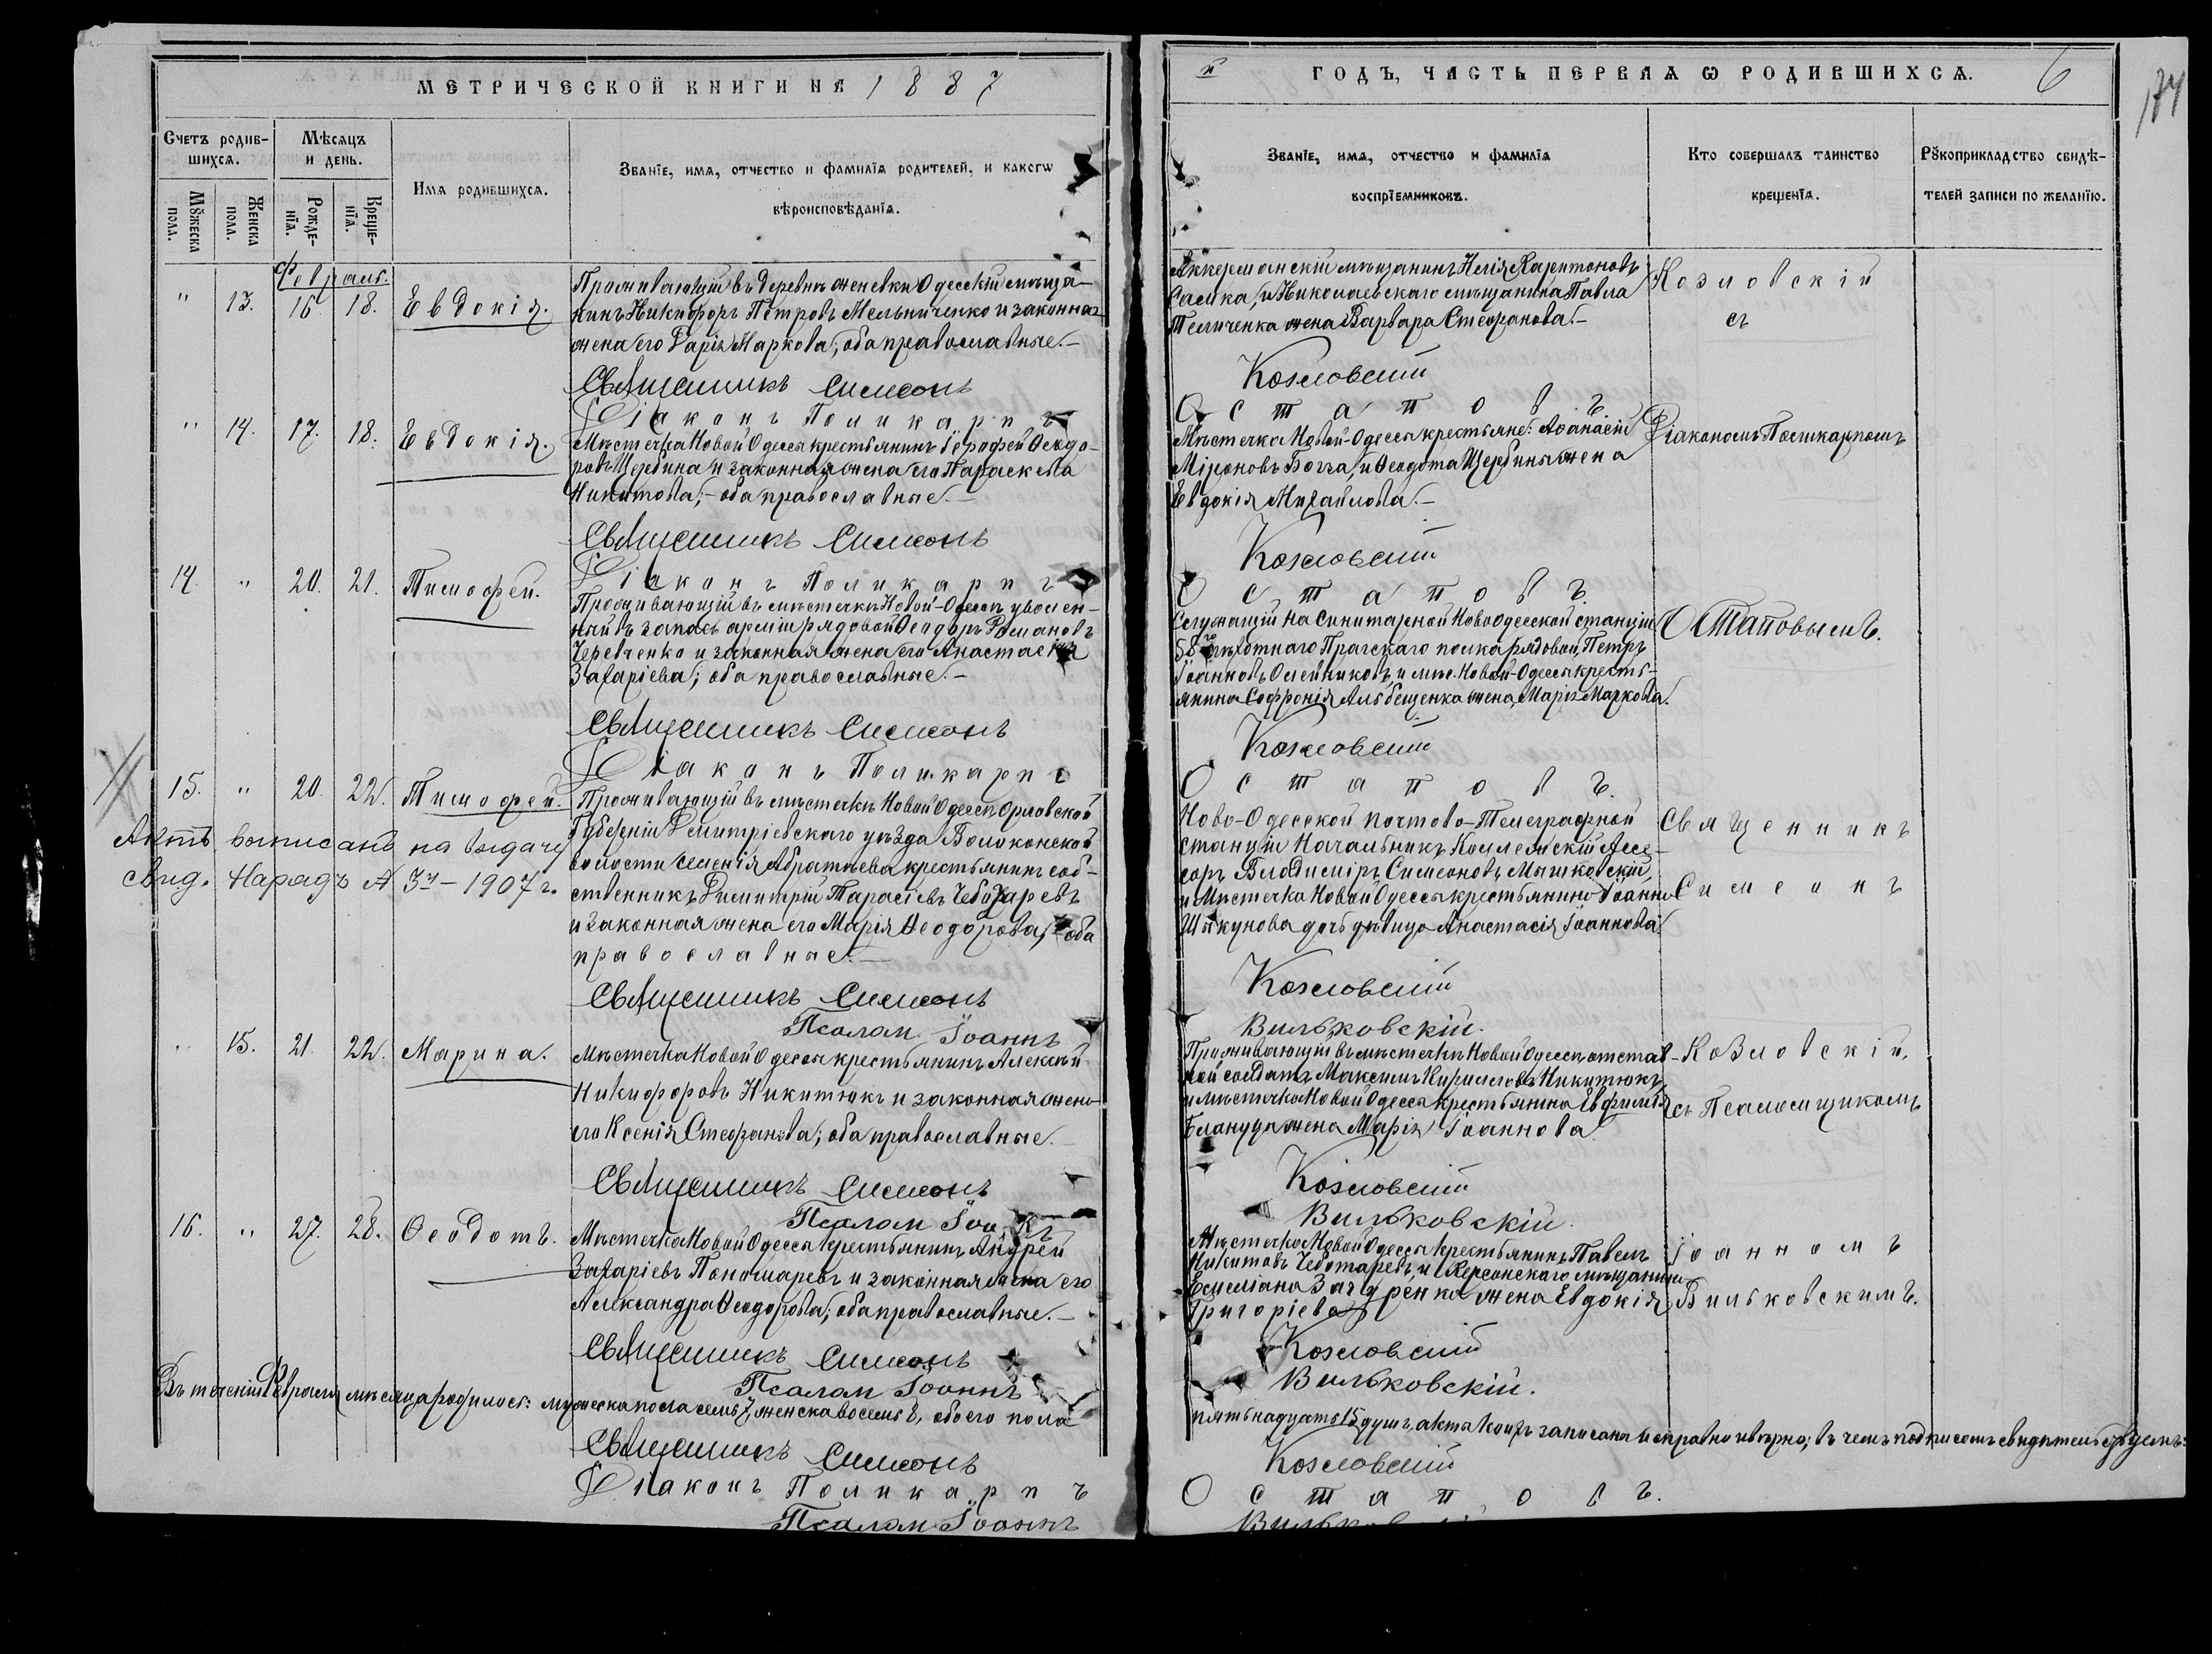 МЕТРИЧЕСКОЙ КНИГИ НА 1887
й ГОДЪ, ЧАСТЬ ПЕРВАЯ Ѡ РОДИВШИХСЯ. 6
174
Счетъ родив-
шихся.
Мѣсяцъ
и день.
Имя родившихся.
Званїе, имя, отчество и фамилїя родителей, и какогѡ
вѣроисповѣданїя.
Мꙋжеска
пола.
Женска
пола.
Рожде-
нїя.
Креще-
нїя.
Званїе, имя, отчество и фамилїя
воспрїемниковъ.
Кто совершалъ таинство
крещенїя.
Рꙋкоприкладство свидѣ-
телей записи по желанїю.
Февраль.
" 13. 16. 18. Евдокія.
Проживающій въ деревнѣ Женевки Одесскій мѣща-
нинъ Никифоръ Петровъ Мельниченко и законная
жена его Дарія Маркова; оба православные.-
Священникъ Симеонъ
Діаконъ Поликарпъ
Аккерманскій мѣщанинъ Илія Харитоновъ
Николаевскаго мѣщанина Павла
Теличенка жена Варвара Стефанова.-
Козловскій
Остаповъ
Козловскій
съ
" 14. 17. 18. Евдокія.
Мѣстечка Новой Одессы крестьянинъ Ѳеодо-
ровъ Щербина и законная жена его Параскева
Никитова;- оба православные.-
Священникъ Симеонъ
Діаконъ Поликарпъ
Мѣстечка Новой-Одессы крестьяне: Аѳанасій
Міроновъ и Ѳеодота Щербины жена
Евдокія Михайлова.-
Козловскій
Остаповъ.
Діакономъ Поликарпомъ
14. " 20. 21. Тимофей.
Проживающій въ мѣстечкѣ Новой-Одессѣ уволен-
ный въ запасъ арміи рядовой Ѳеодоръ Романовъ
Черевченко и законная жена его Анастасія
Захаріева; оба православные.-
Священникъ Симеонъ
Діаконъ Поликарпъ
Служащій на Санитарной Новоодесской станціи
58го пѣхотнаго Прагскаго полка рядовой Петръ
Іоанновъ Олейниковъ, и мѣс. Новой-Одессы кресть-
янина Софронія жена Марія Маркова.
Козловскій
Остаповъ.
Остаповымъ.
15. " 20. 22. Тимофей.
Актъ выписанъ на выдачу
свид. Нарядъ № 3й-1907 г.
Проживающій въ мѣстечкѣ Новой Одессѣ Орловской
Губерніи Дмитріевскаго уѣзда
волости селенія крестьянинъ соб-
ственникъ Димитрій Тарасіевъ Чеботаревъ
и законная жена его Марія Ѳеодорова; оба
православные.-
Священникъ Симеонъ
Псалом Іоаннъ
Ново-Одесской почтово-Телеграфной
станціи Начальникъ Коллежскій Ассе-
соръ Владиміръ Симеоновъ Мышковскій,
и Мѣстечка Новой Одессы крестьянина Іоанна
Шыкунова дочь дѣвица Анастасія Іоаннова.
Козловскій
Вильковскій.
Священникъ
Симеонъ
" 15. 21. 22. Марина.
Мѣстечка Новой Одессы крестьянинъ Алексѣй
Никифоровъ Никитюкъ и законная жена
его Ксенія Стефанова; оба православные.-
Священникъ Симеонъ
Псалом Іоаннъ
Проживающій въ мѣстечкѣ Новой Одессѣ отстав-
ной солдатъ Максимъ Кирилловъ Никитюкъ,
и мѣстечка Новой Одессы крестьянина Евфимія
жена Марія Іоаннова.
Козловскій
Вильковскій.
Козловскій,
съ Псаломщикомъ
16. " 27. 28. Ѳеодотъ.
Мѣстечка Новой Одессы крестьянинъ Андрей
Захаріевъ Пономаревъ и законная жена его
Александра Ѳеодорова; оба православные.-
Священникъ Симеонъ
Псалом Іоаннъ
Мѣстечка Новой Одессы крестьянинъ Павелъ
Никитовъ Чеботаревъ, и Херсонскаго мѣщанина
Емеліана жена Евдокія
Григоріева.
Козловскій
Вильковскій.
Іоанномъ
Вильковскимъ.
Въ теченіи Февраля мѣсяца родилось: мужеска пола семь 7, женска восемь 8, обоего пола
пятьнадцать 15 душъ, акты коихъ записаны исправно и вѣрно; въ чемъ подписомъ свидѣтельствуемъ:
Священникъ Симеонъ
Діаконъ Поликарпъ
Псалом Іоаннъ
Козловскій
Остаповъ.